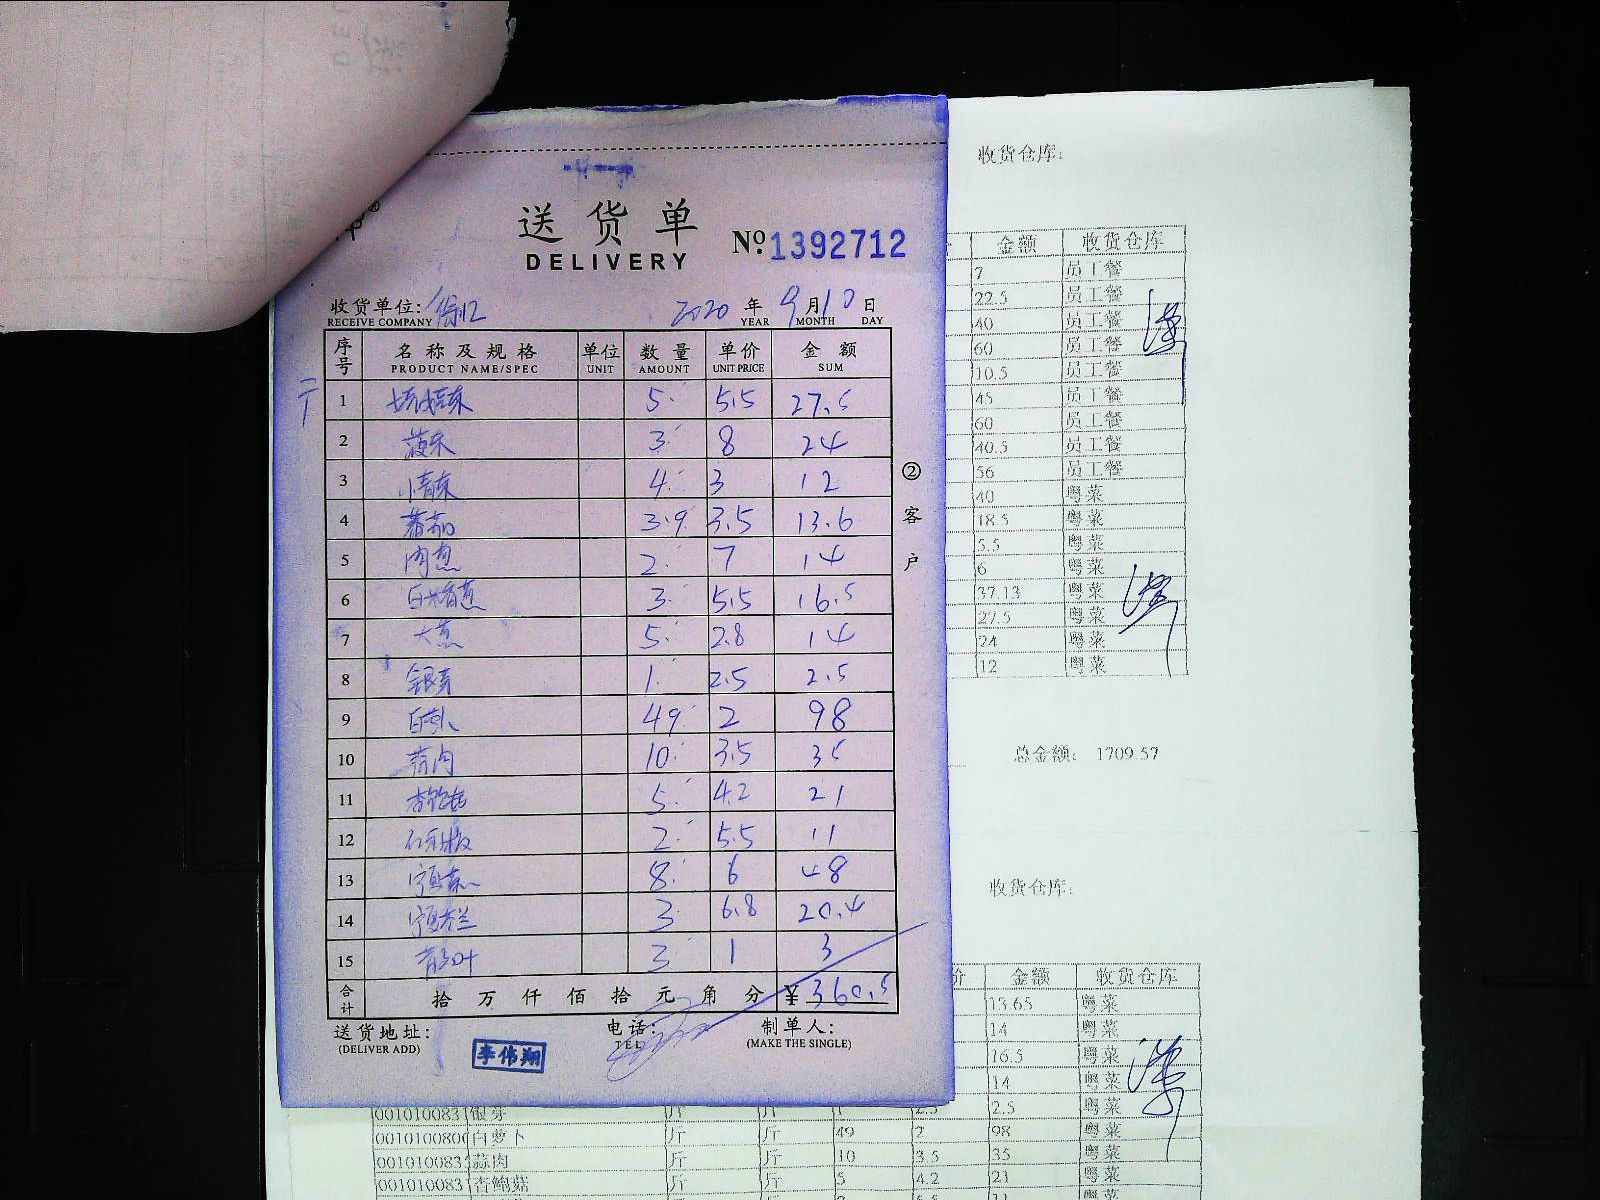 送货单
№ 1392712
DELIVERY
收货单位: 2020 年 9 月 10 日
RECEIVE COMPANY YEAR MONTH DAY
序号 名称及规格 单位 数量 单价 金额
PRODUCT NAME/SPEC UNIT AMOUNT UNIT PRICE SUM
1 5 5.5 27.5
2 菠菜 3 8 24
3 小青菜 4 3 12
4 番茄 3.9 3.5 13.6
5 肉葱 2 7 14
6 白米香葱 3 5.5 16.5
7 大葱 5 2.8 14
8 银芽 1 2.5 2.5
9 白萝卜 49 2 98
10 蒜肉 10 3.5 35
11 杏鲍菇 5 4.2 21
12 2 5.5 11
13 8 6 48
14 3 6.8 20.4
15 3 1 3
合计 拾 万 仟 佰 拾 元 角 分 ¥ 360.5
送货地址: 电话: 制单人:
(DELIVER ADD) TEL (MAKE THE SINGLE)
李伟翔
② 客户
收货仓库:
金额 收货仓库
7 员工餐
22.5 员工餐
40 员工餐
60 员工餐
10.5 员工餐
45 员工餐
60 员工餐
40.5 员工餐
56 员工餐
40 粤菜
18.5 粤菜
5.5 粤菜
6 粤菜
37.13 粤菜
27.5 粤菜
24 粤菜
12 粤菜
总金额: 1709.57
收货仓库:
价 金额 收货仓库
13.65 粤菜
14 粤菜
16.5 粤菜
14 粤菜
001010083 银芽 斤 斤 1 2.5 2.5 粤菜
001010080 白萝卜 斤 斤 49 2 98 粤菜
001010083 蒜肉 斤 斤 10 3.5 35 粤菜
001010083 杏鲍菇 斤 斤 5 4.2 21 粤菜